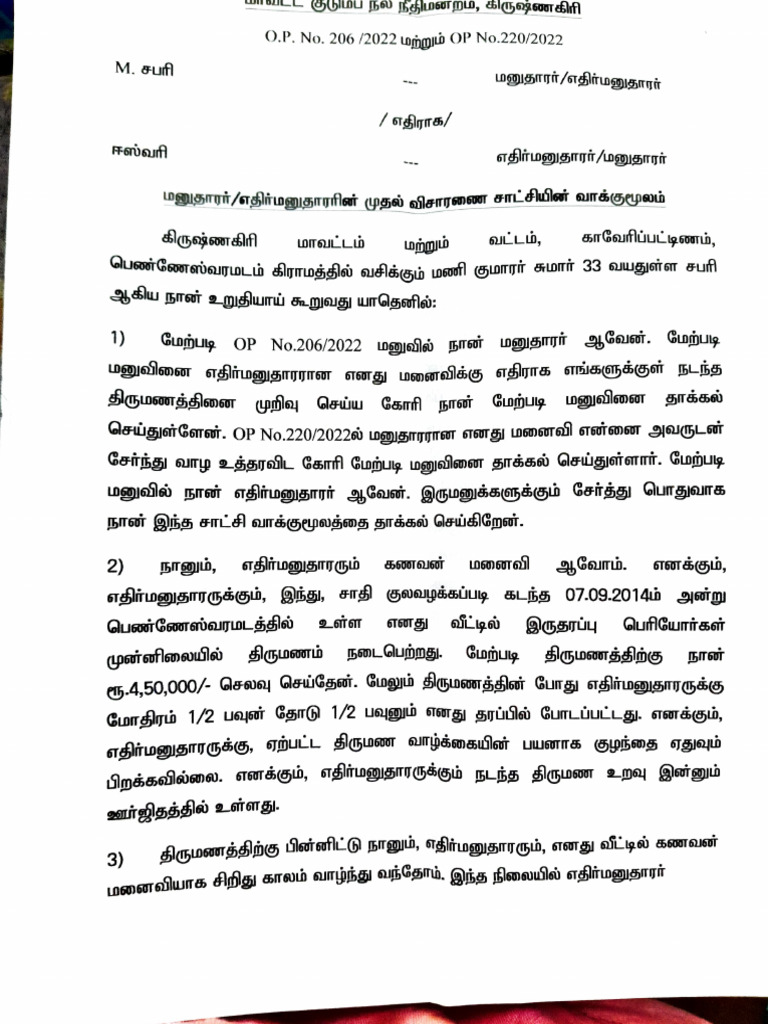 மாவட்ட குடும்ப நல நீதிமன்றம், கிருஷ்ணகிரி
O.P. No. 206 /2022 மற்றும் OP No.220/2022
M. சபரி --- மனுதாரர்/எதிர்மனுதாரர்
/ எதிராக/
ஈஸ்வரி --- எதிர்மனுதாரர்/மனுதாரர்
மனுதாரர்/எதிர்மனுதாரரின் முதல் விசாரணை சாட்சியின் வாக்குமூலம்
கிருஷ்ணகிரி மாவட்டம் மற்றும் வட்டம், காவேரிப்பட்டிணம்,
பெண்ணேஸ்வரமடம் கிராமத்தில் வசிக்கும் மணி குமாரர் சுமார் 33 வயதுள்ள சபரி
ஆகிய நான் உறுதியாய் கூறுவது யாதெனில்:
1) மேற்படி OP No.206/2022 மனுவில் நான் மனுதாரர் ஆவேன். மேற்படி
மனுவினை எதிர்மனுதாரரான எனது மனைவிக்கு எதிராக எங்களுக்குள் நடந்த
திருமணத்தினை முறிவு செய்ய கோரி நான் மேற்படி மனுவினை தாக்கல்
செய்துள்ளேன். OP No.220/2022ல் மனுதாரரான எனது மனைவி என்னை அவருடன்
சேர்ந்து வாழ உத்தரவிட கோரி மேற்படி மனுவினை தாக்கல் செய்துள்ளார். மேற்படி
மனுவில் நான் எதிர்மனுதாரர் ஆவேன். இருமனுக்களுக்கும் சேர்த்து பொதுவாக
நான் இந்த சாட்சி வாக்குமூலத்தை தாக்கல் செய்கிறேன்.
2) நானும், எதிர்மனுதாரரும் கணவன் மனைவி ஆவோம். எனக்கும்,
எதிர்மனுதாரருக்கும், இந்து, சாதி குலவழக்கப்படி கடந்த 07.09.2014ம் அன்று
பெண்ணேஸ்வரமடத்தில் உள்ள எனது வீட்டில் இருதரப்பு பெரியோர்கள்
முன்னிலையில் திருமணம் நடைபெற்றது. மேற்படி திருமணத்திற்கு நான்
ரூ.4,50,000/- செலவு செய்தேன். மேலும் திருமணத்தின் போது எதிர்மனுதாரருக்கு
மோதிரம் 1/2 பவுன் தோடு 1/2 பவுனும் எனது தரப்பில் போடப்பட்டது. எனக்கும்,
எதிர்மனுதாரருக்கு, ஏற்பட்ட திருமண வாழ்க்கையின் பயனாக குழந்தை ஏதுவும்
பிறக்கவில்லை. எனக்கும், எதிர்மனுதாரருக்கும் நடந்த திருமண உறவு இன்னும்
ஊர்ஜிதத்தில் உள்ளது.
3) திருமணத்திற்கு பின்னிட்டு நானும், எதிர்மனுதாரரும், எனது வீட்டில் கணவன்
மனைவியாக சிறிது காலம் வாழ்ந்து வந்தோம். இந்த நிலையில் எதிர்மனுதாரர்